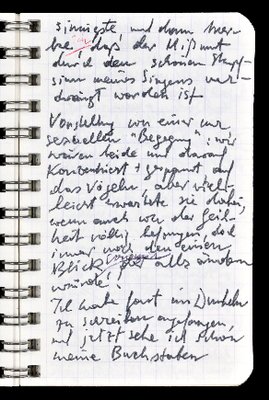 sinnigste und dann
daß der Mißmut
durch den schönen Stumpf-
sinn meines Singens ver-
drängt worden ist
Vorstellung von einer nur
sexuellen "Begegn": wir
wären beide nur darauf
konzentriert + gespannt, auf
das Vögeln, aber viel-
leicht erwartete sie dabei,
wenn auch von der Geil-
heit völlig befangen, doch
immer noch den einen
Blick, der alles ändern
würde!
Ich habe ganz im Dunkeln
zu schreiben angefangen,
und jetzt sehe ich schon
meine Buchstaben